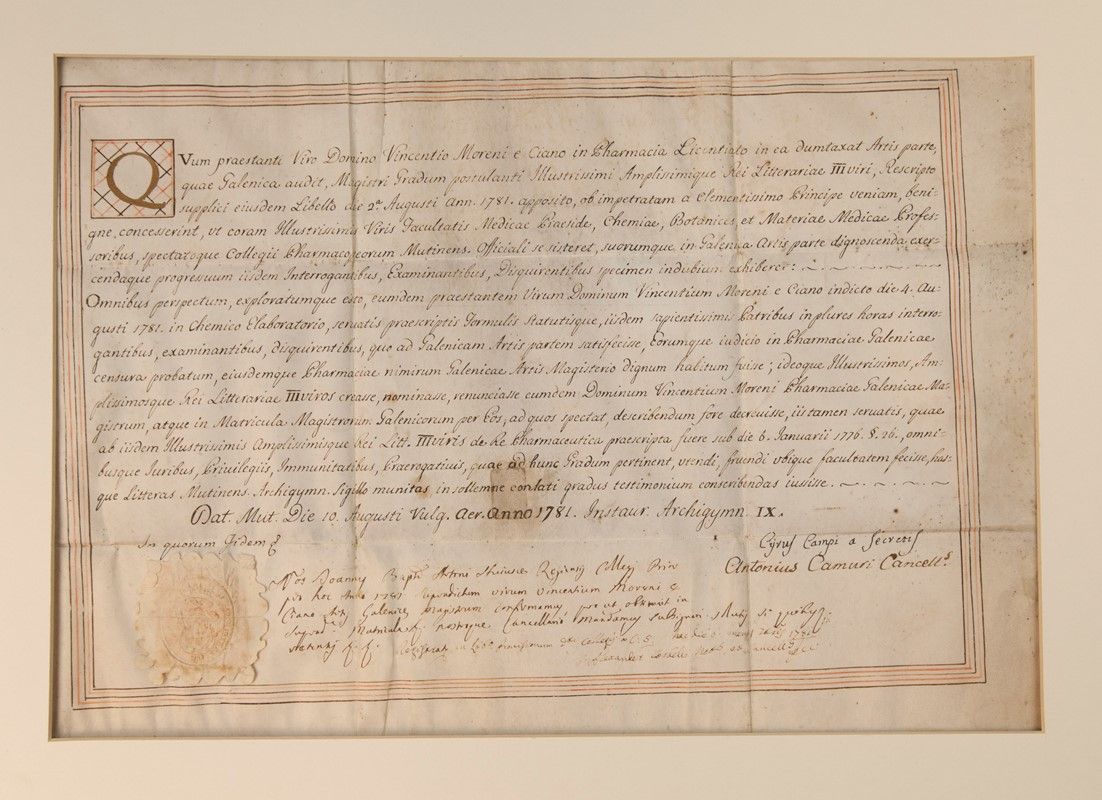 QVum praestanti Viro Domino Vincentio Moreni e Ciano in Pharmacia Licentiato in ea dumtaxat Artis parte,
quae Galenica audit, Magistri Gradum postulanti Illustrissimi Amplissimique Rei Litterariae IIIviri, Rescripto
supplici eiusdem Libello die 2.ª Augusti Ann. 1781. apposito, ob impetratam a Clementissimo Principe veniam, beni-
gne, concesserint, vt coram Illustrissimis Viris Facultatis Medicae Praeside, Chemiae, Botanices et Materiae Medicae Profes-
soribus, spectatoque Collegii Pharmacopoeorum Mutinens. Officiali se sisteret, suorumque, in Galenica Artis parte dignoscenda, exer-
cendaque progressuum iisdem Interrogantibus, Examinantibus, Disquirentibus specimen indubium exhiberet:
Omnibus perspectum, exploratumque esto, eumdem praestantem Virum Dominum Vincentium Moreni e Ciano indicto die 4. Au-
gusti 1781. in Chemico Elaboratorio, seruatis praescriptis Formulis Statutisque, iisdem sapientissimis Patribus in plures horas interro-
gantibus, examinantibus, disquirentibus, quo ad Galenicam Artis partem satisfecisse, Eorumque iudicio in Pharmaciae Galenicae
censura probatum, eiusdemque Pharmaciae nimirum Galenicae Artis Magisterio dignum habitum fuisse; ideoque Illustrissimos, Am-
plissimosque Rei Litterariae IIIviros creasse, nominasse, renunciasse eumdem Dominum Vincentium Moreni Pharmaciae Galenicae Ma-
gistrum, atque in Matricula Magistrorum Galenicorum per Eos, ad quos spectat, describendum fore decreuisse, iis tamen seruatis, quae
ab iisdem Illustrissimis Amplissimisque Rei Litt. IIIviris de Re Pharmaceutica praescripta fuere sub die 6. Ianuarii 1776. §. 26., omni-
busque Iuribus, Priuilegiis, Immunitatibus, Praerogatiuis, quae ad hunc Gradum pertinent, vtendi, fruendi vbique facultatem fecisse, has-
que Litteras Mutinens. Archigymn. Sigillo munitas in sollemne conlati gradus testimonium conscribendas iussisse.
Dat. Mut. Die 10. Augusti Vulg. Aer. Anno 1781. Instaur. Archigymn. IX.
In quorum Fidem
Cyrus Campi a Secretis
Antonius Camuri Cancell.s
Nos Joannes Bapt.
pro hoc Anno 1781 supradictum virum Vincentium Moreni e
Ciano Artis Galenice magistrum confirmamus, pro ut obtinuit in
Mutin nostroque Cancellario mandamus